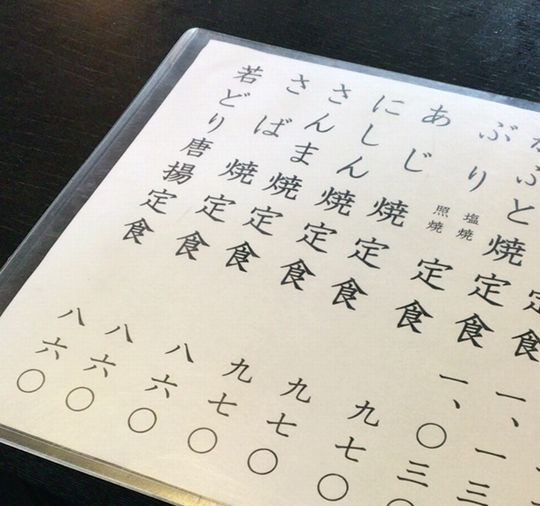 定食 一、一三
ぶと焼定食 一、〇三〇
ぶり 塩焼 照焼 定食 九七〇
あじ焼定食 九七〇
にしん焼定食 九七〇
さんま焼定食 八六〇
さば焼定食 八六〇
若どり唐揚定食 八六〇